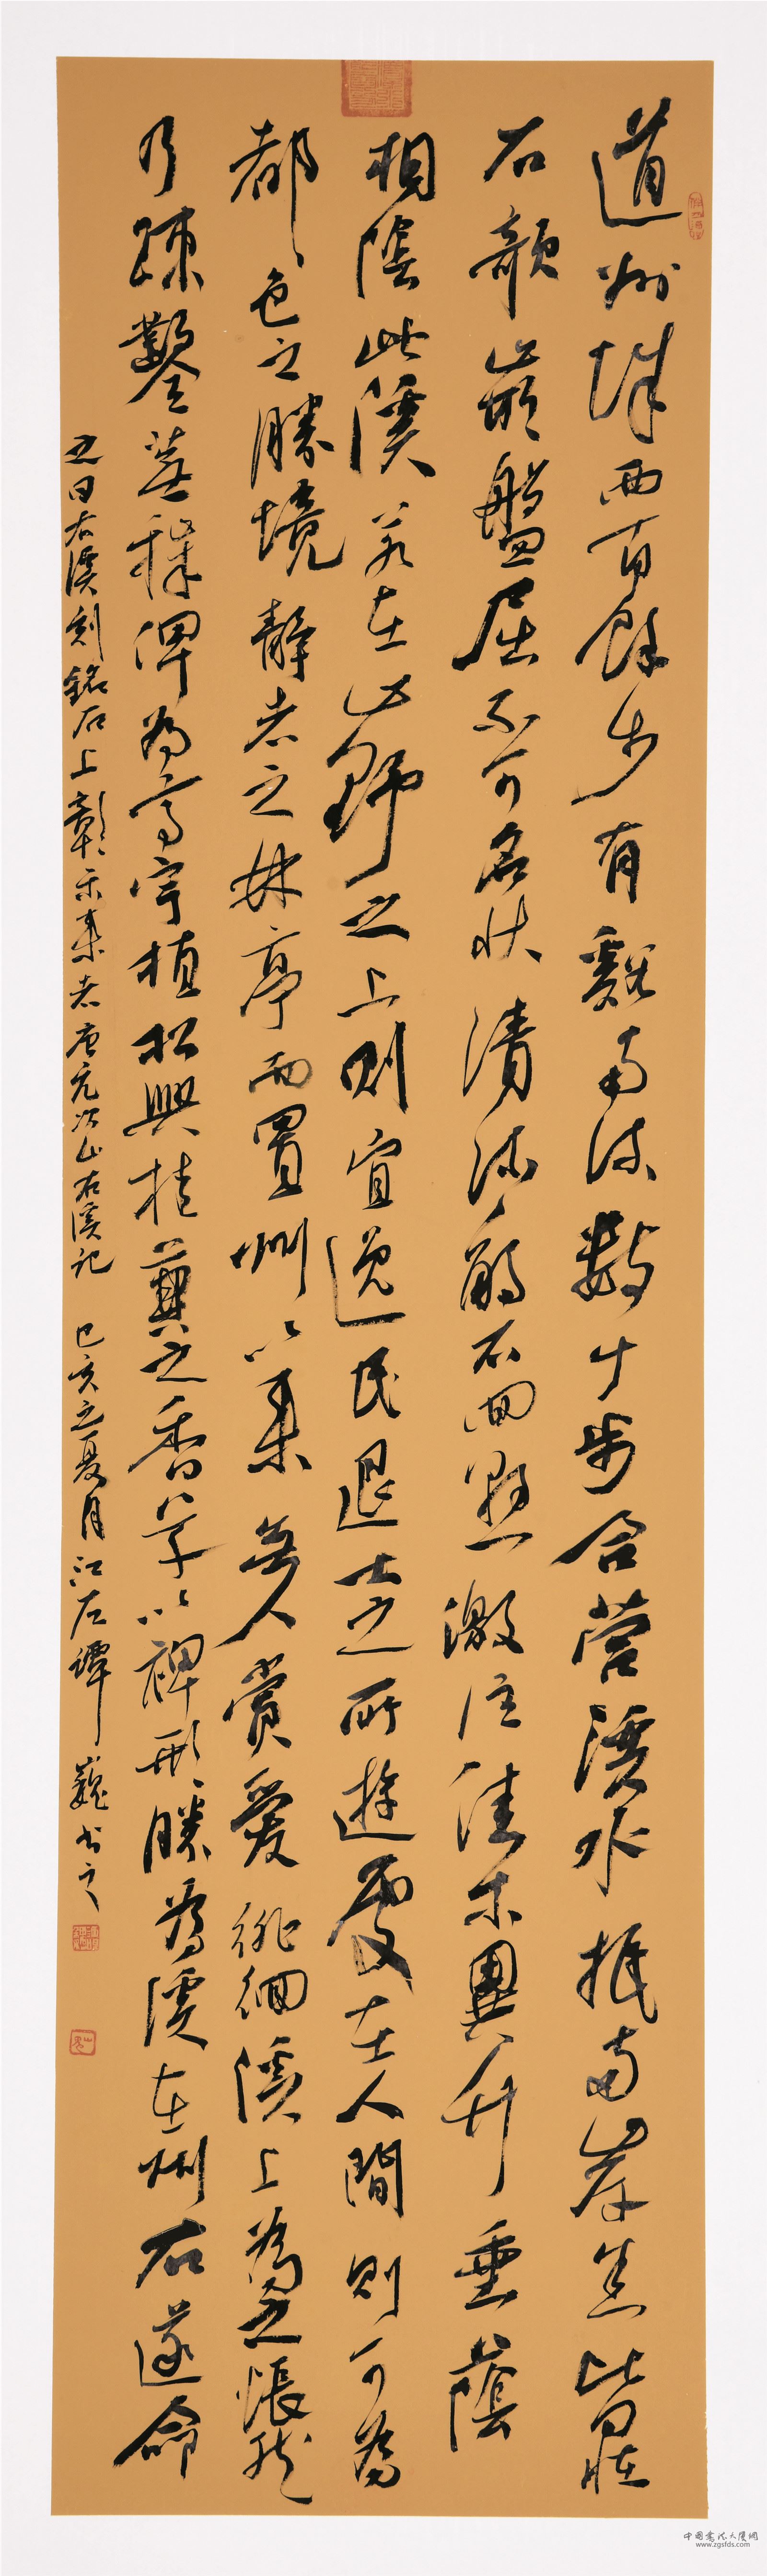 道州城西百餘步有谿南流數十步合營溪水抵南岸悉皆怪
石欹嵌盤屈不可名狀清流觸石洄懸激注佳木異竹垂蔭
相蔭此溪若在山野之上則宜逸民退士之所遊處在人間則可為
都邑之勝境靜者之林亭而置州以來無人賞愛徘徊溪上為之悵然
乃疎鑿蕪穢俾為亭宇植松與桂兼之香草以裨形勝為溪在州右遂命
之曰右溪刻銘石上彰示來者唐元次山右溪記 己亥之夏月江左譚巍书之
中國書法大廈網
www.zgsfds.com